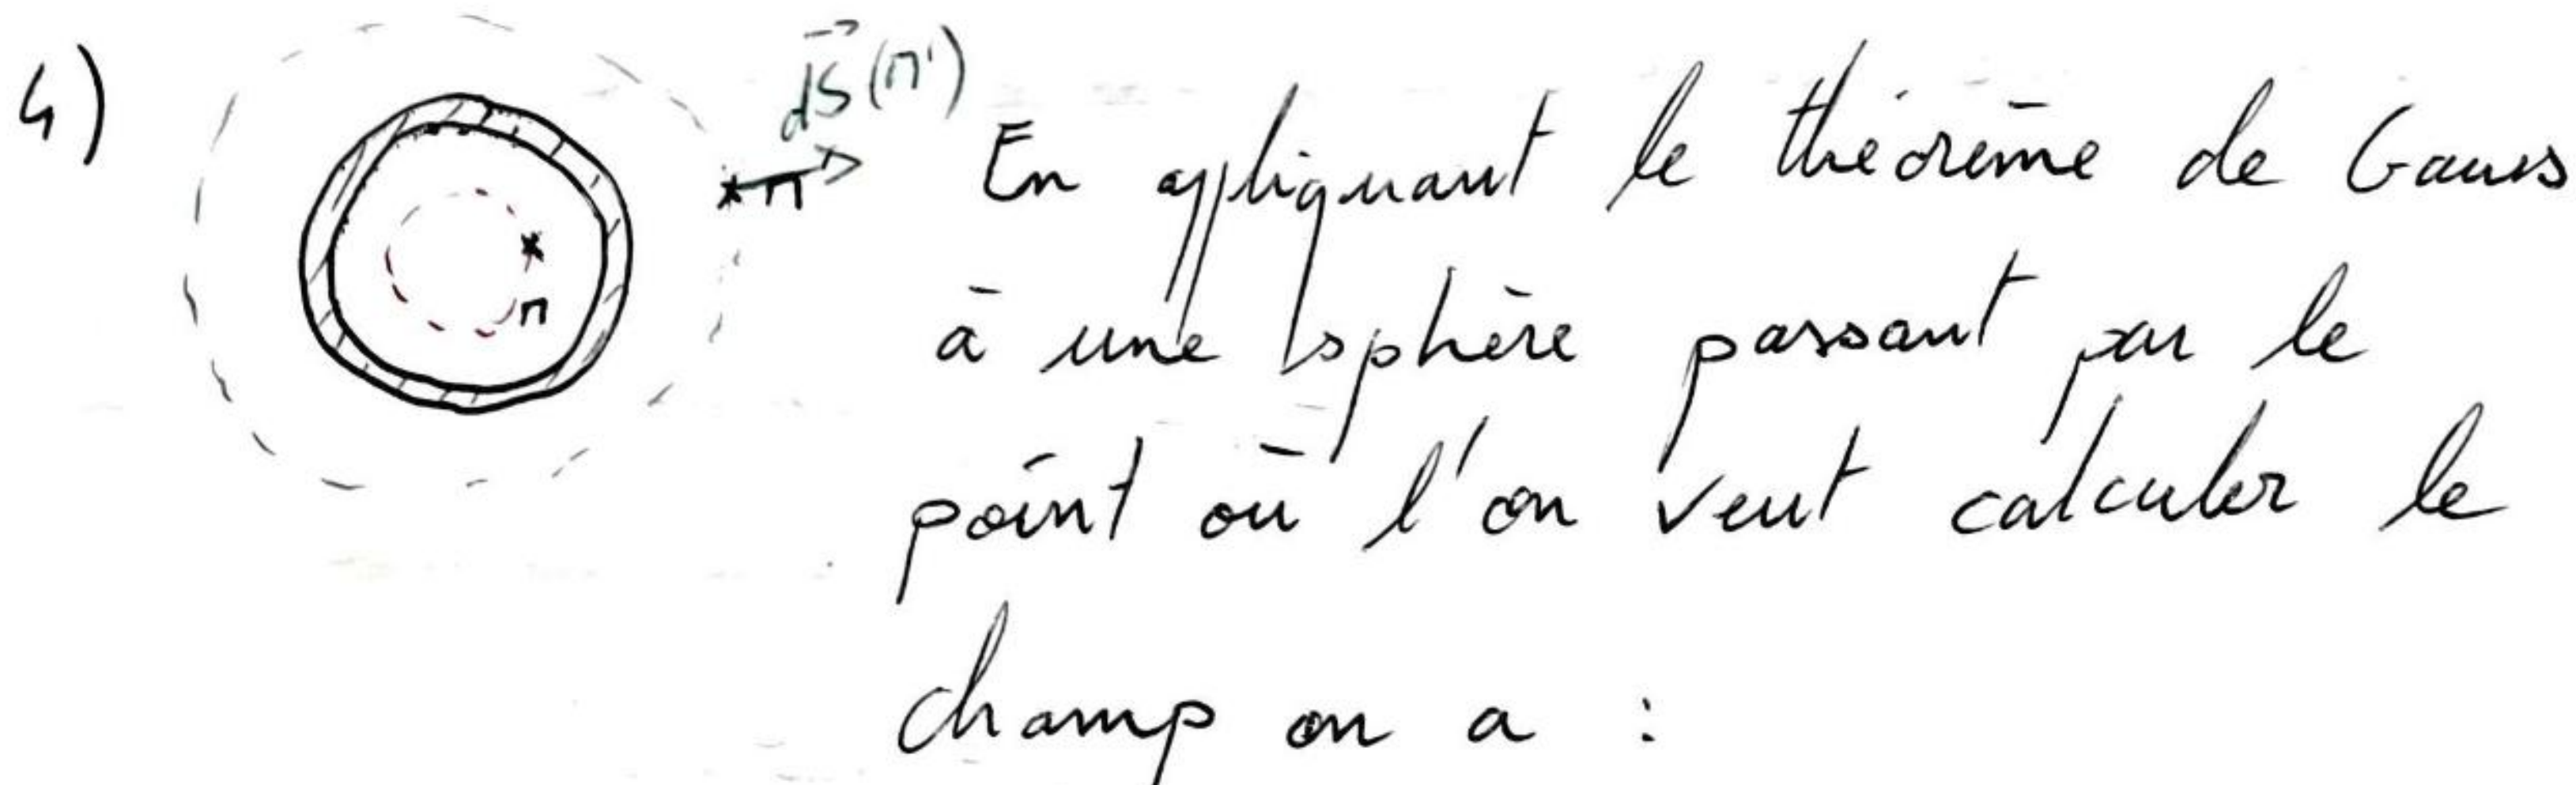 4) dS(M') En appliquant le théorème de Gauss
M
M
à une sphère passant par le
point où l'on veut calculer le
champ on a :